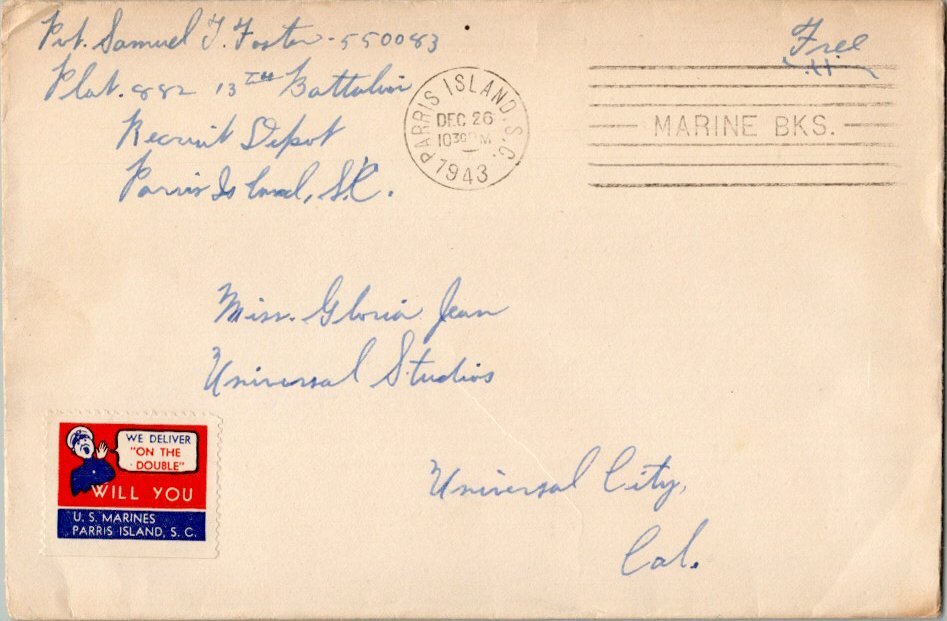 Pvt. Samuel J. Foster - 550083
Plat. 882 13TH Battalion
Recruit Depot
Parris Island, S.C.
PARRIS ISLAND, S.C.
DEC 26
1030 PM
1943
Free
MARINE BKS.
Miss. Gloria Jean
Universal Studios
Universal City,
Cal.
WE DELIVER
"ON THE
DOUBLE"
WILL YOU
U. S. MARINES
PARRIS ISLAND, S. C.